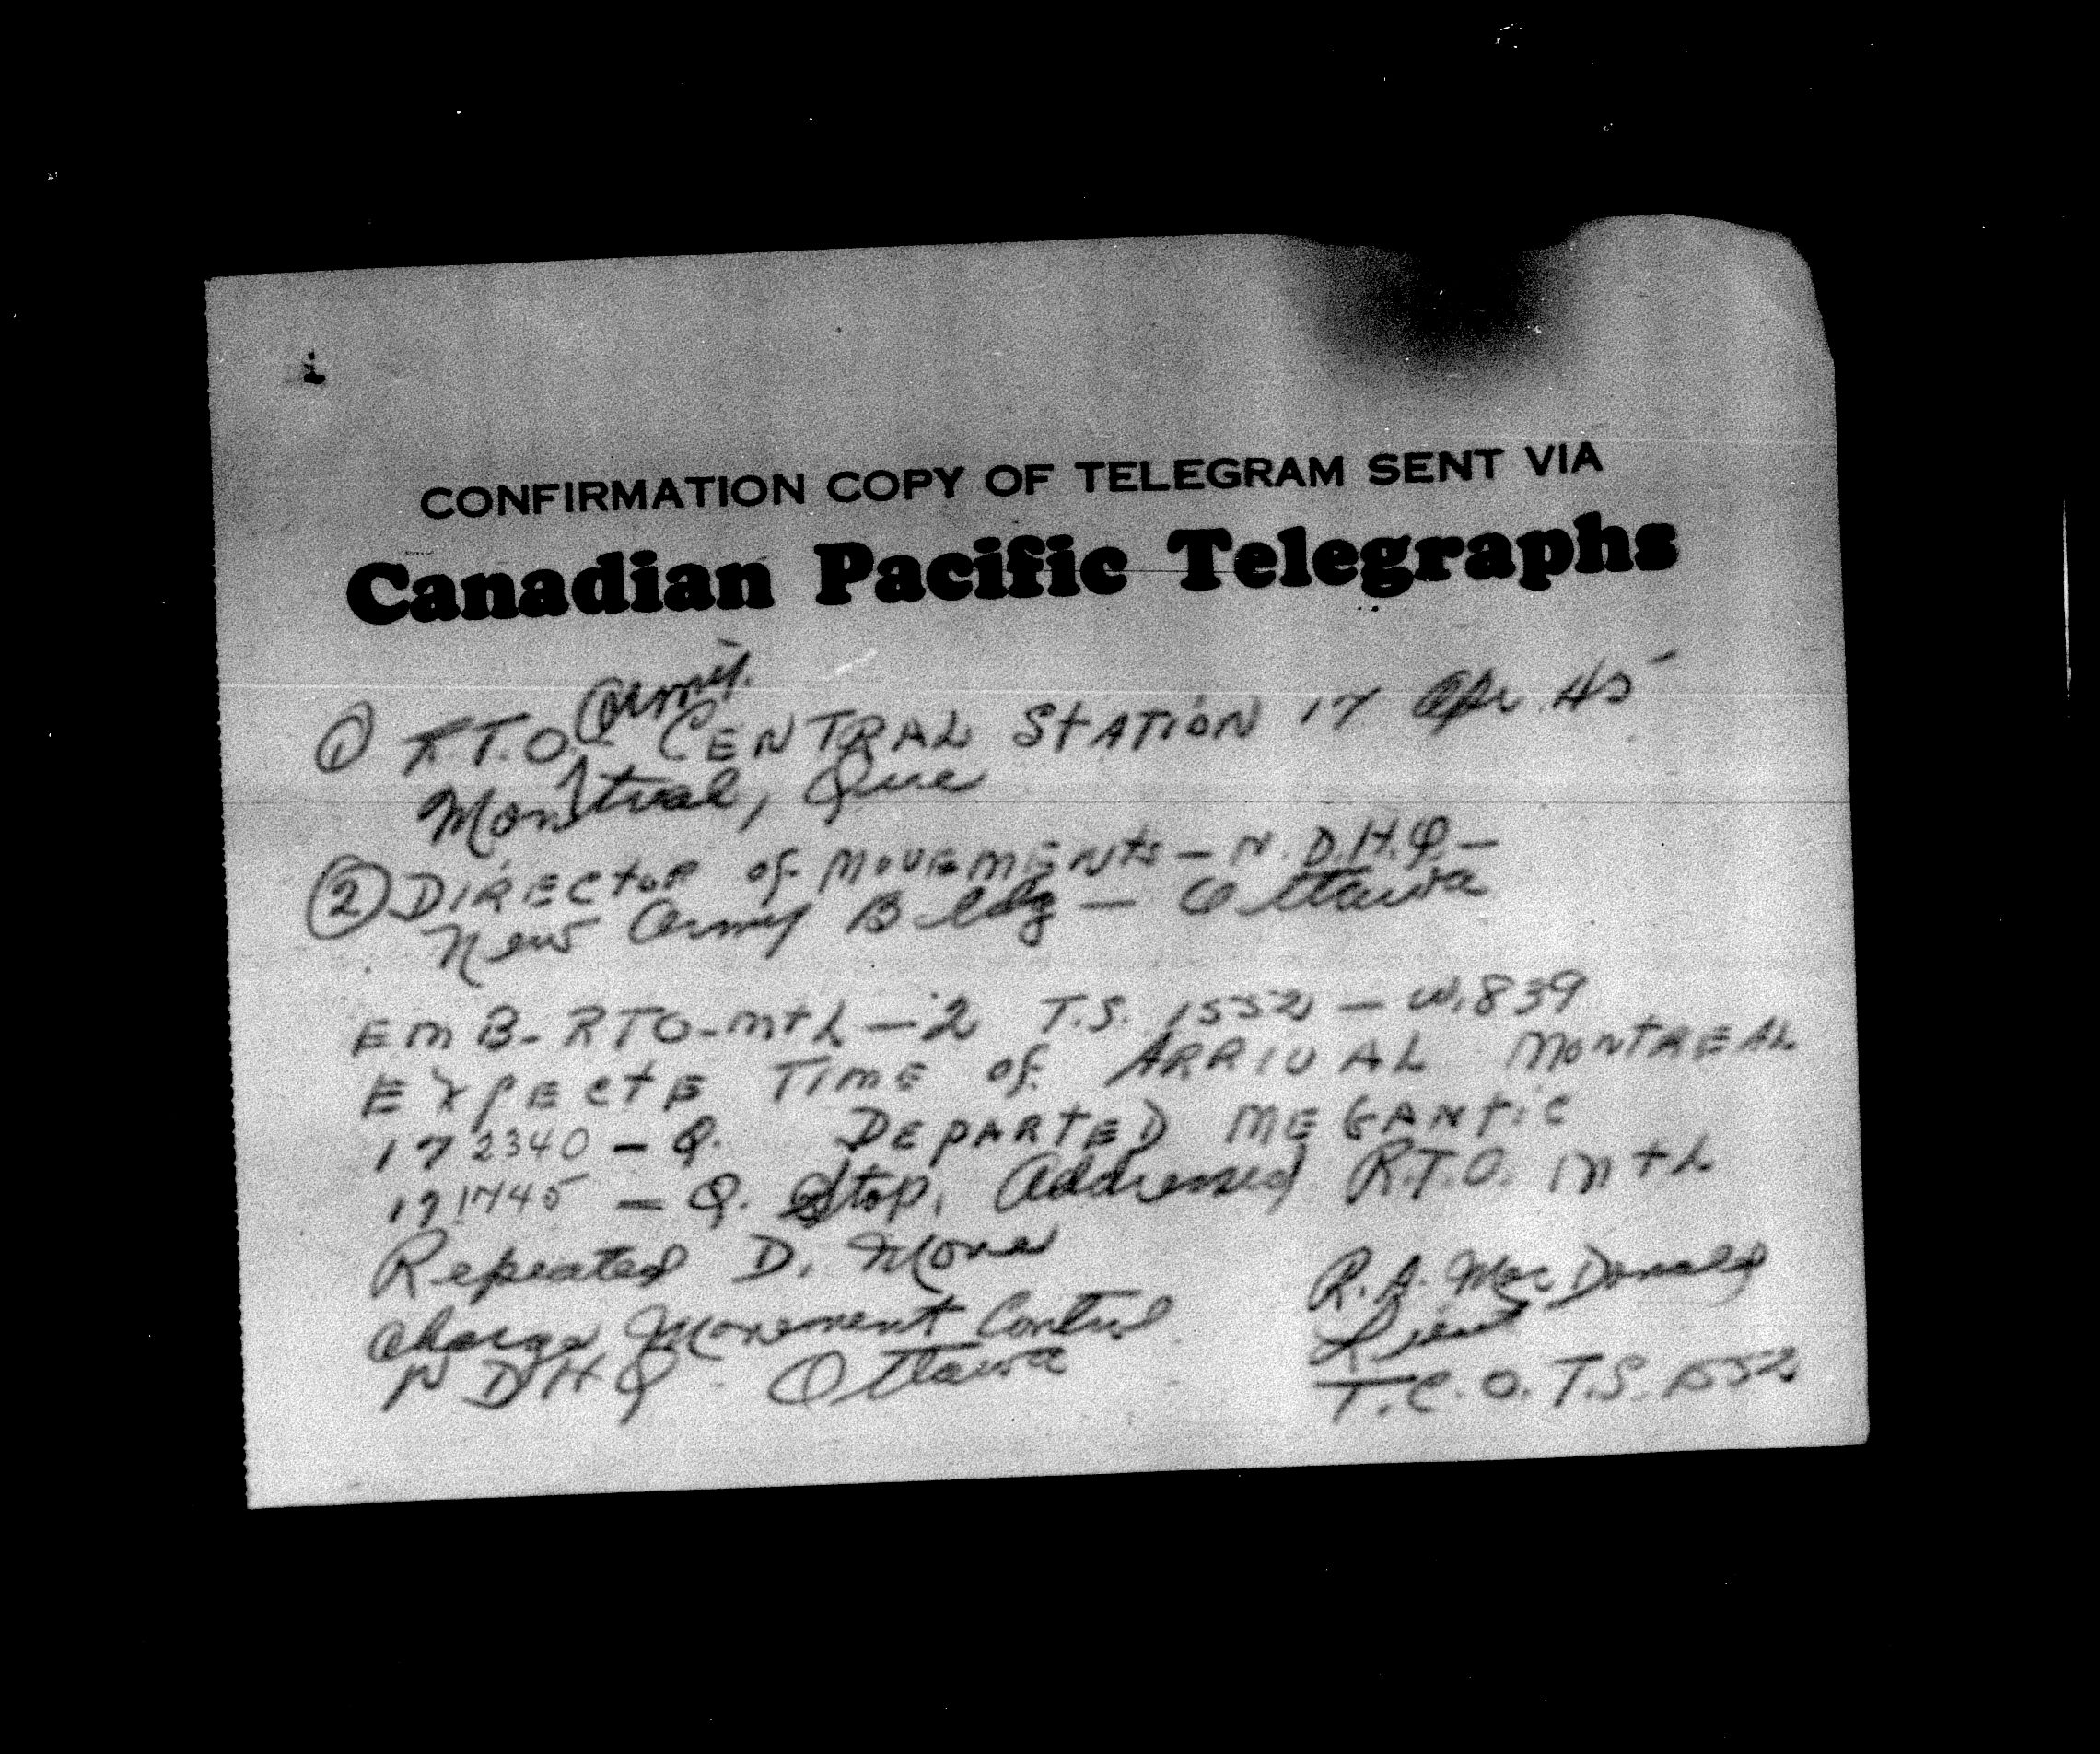 CONFIRMATION COPY OF TELEGRAM SENT VIA
Canadian Pacific Telegraphs
① R.T.O. (Army) CENTRAL STATION 17 Apr 45
Montreal, Que
② DIRECTOR of MOVEMENTS – N.D.H.Q. –
New Army Bldg – Ottawa
EMB-RTO-MTL – 2 T.S. 1552 – W.839
EXPECTE TIME of ARRIVAL MONTREAL
172340 – Q. DEPARTED MEGANTIC
171745 – Q. Stop. Addressed R.T.O. MTL
Repeated D. Move
Charge Movement Control
N D H Q Ottawa
R.A. MacDonald
Lieut
T.C.O. T.S. 1552